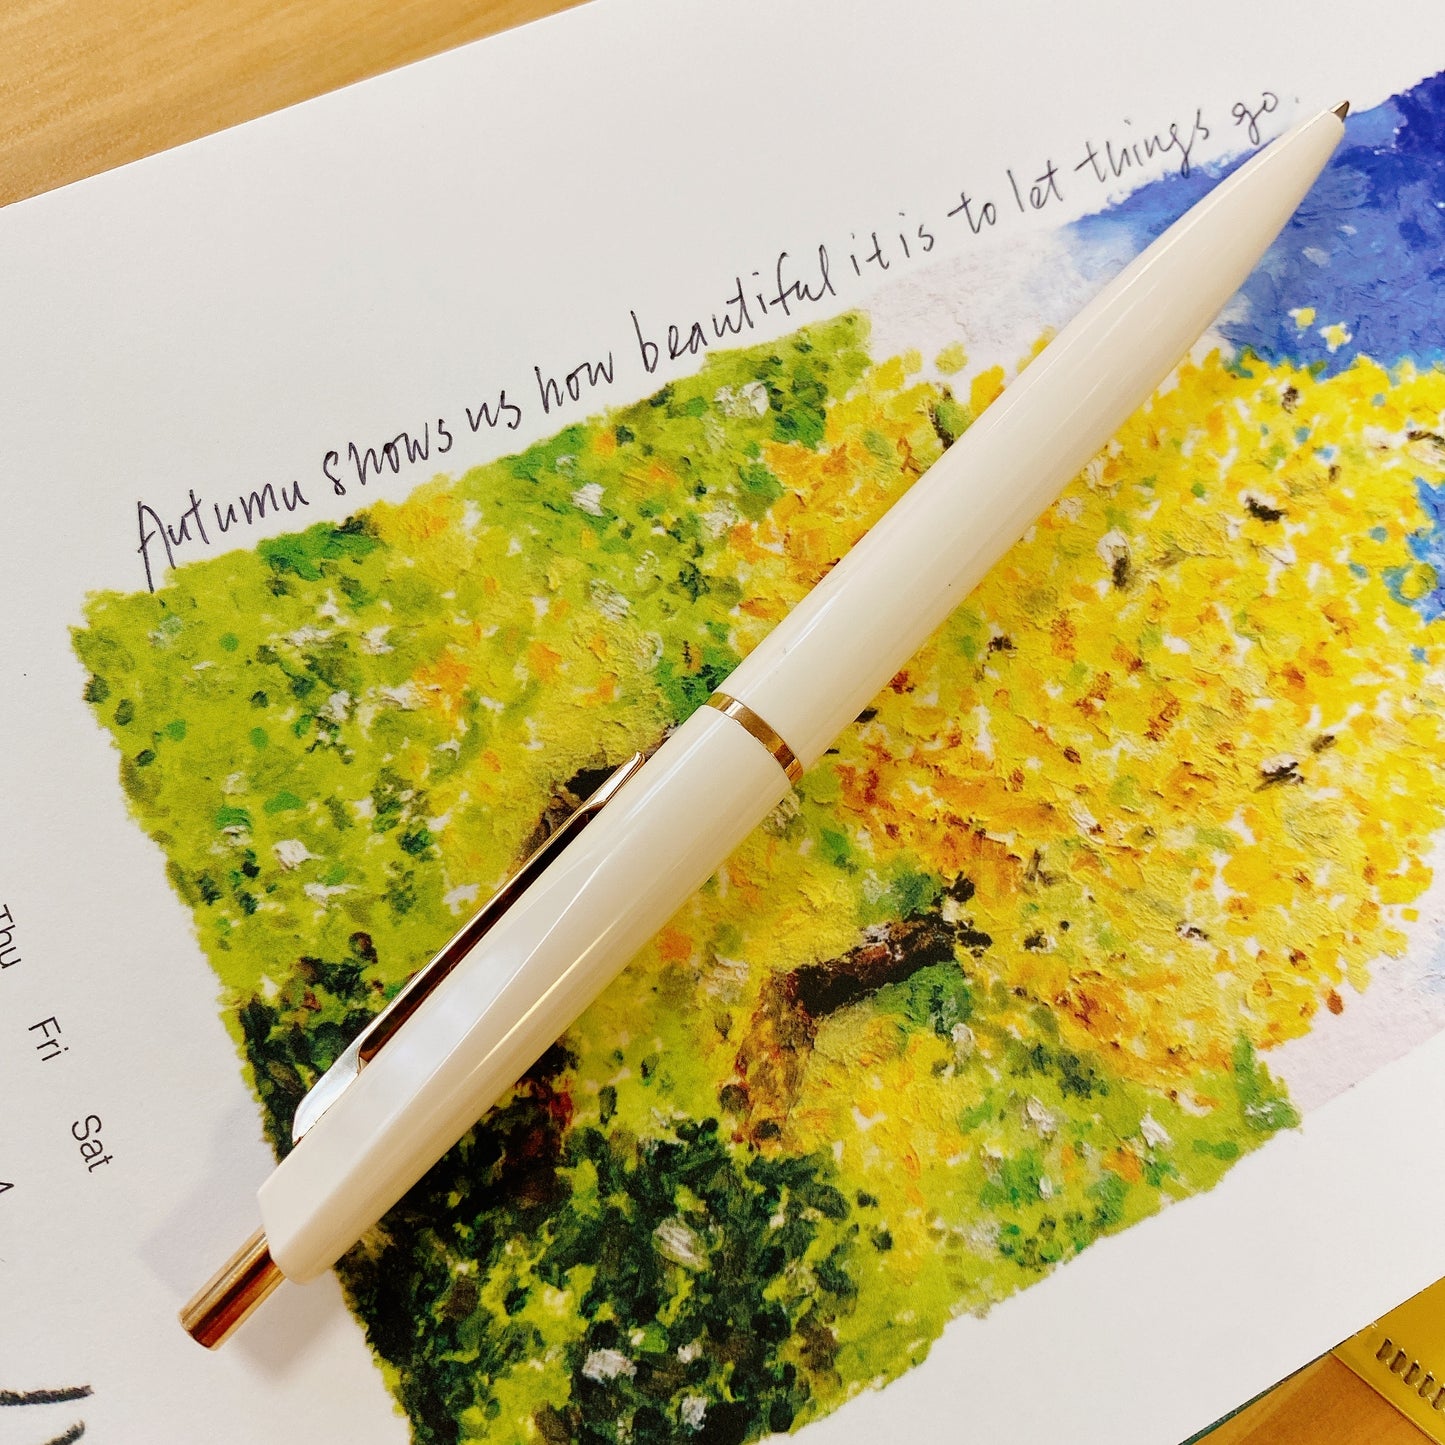 Autumn shows us how beautiful it is to let things go.
Thu
Fri
Sat